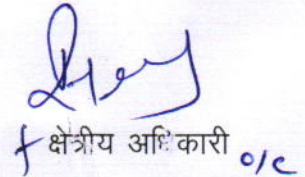 क्षेत्रीय अधिकारी o/c